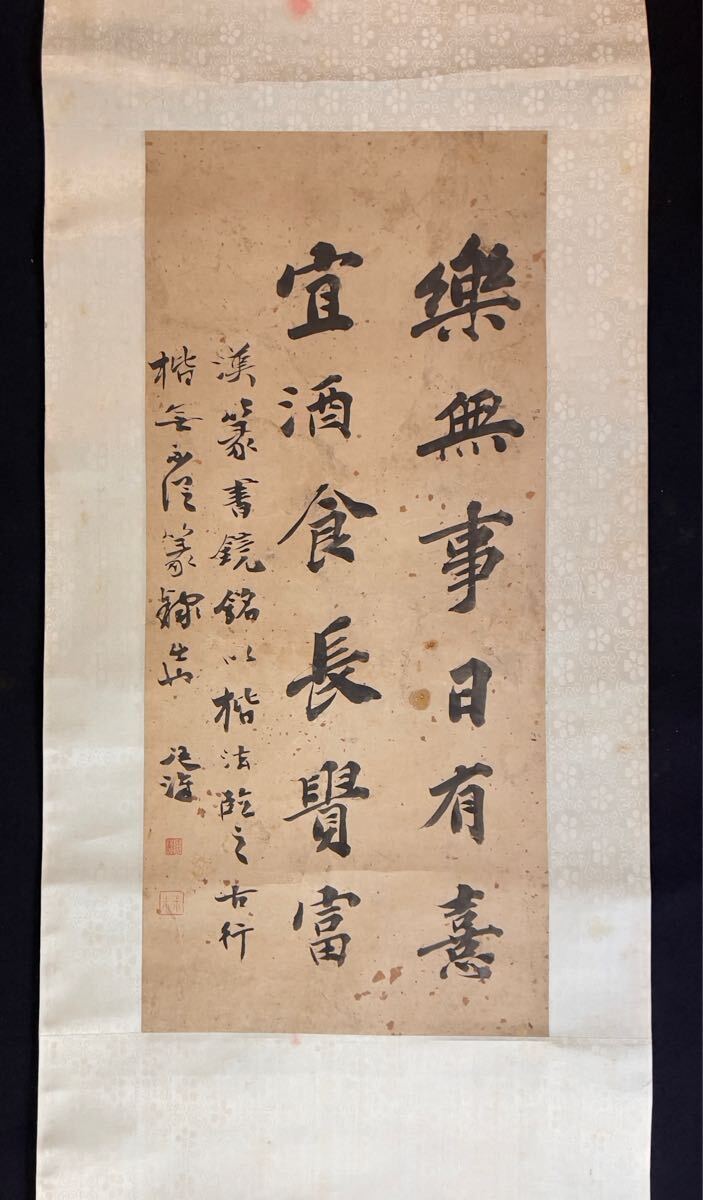 樂無事日有熹
宜酒食長貴富
漢篆書鏡銘以楷法臨之古行
楷無不從篆隸出也